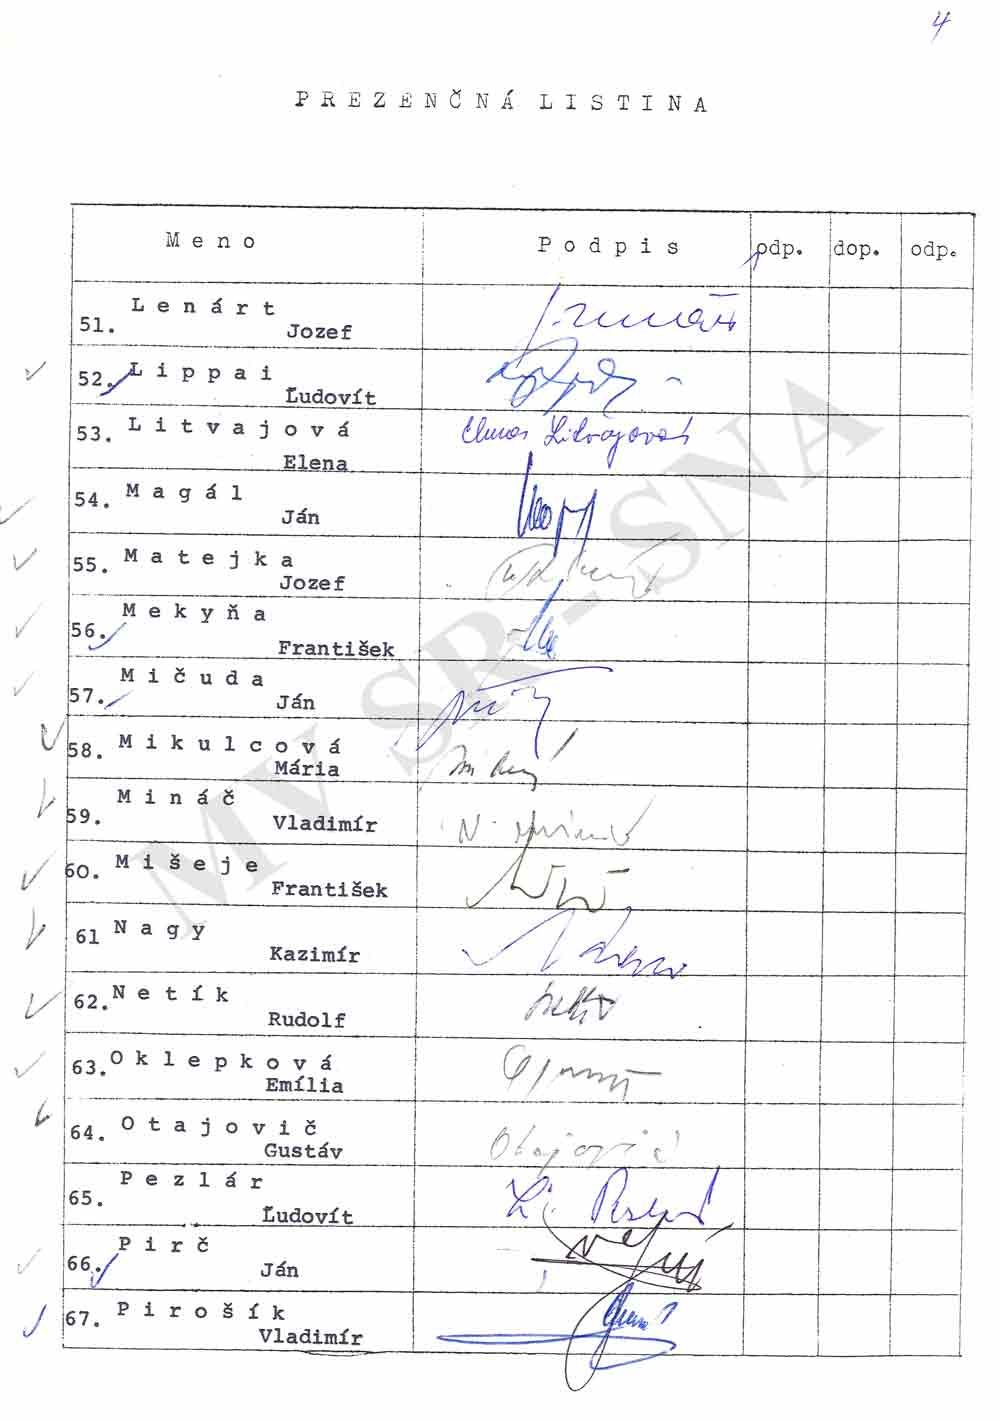 4
PREZENČNÁ LISTINA
Meno Podpis odp. dop. odp.
51. Lenárt
Jozef
52. Lippai
Ľudovít
53. Litvajová
Elena
54. Magál
Ján
55. Matejka
Jozef
56. Mekyňa
František
57. Mičuda
Ján
58. Mikulcová
Mária
59. Mináč
Vladimír
60. Mišeje
František
61 Nagy
Kazimír
62. Netík
Rudolf
63. Oklepková
Emília
64. Otajovič
Gustáv
Otajovič
65. Pezlár
Ľudovít
66. Pirč
Ján
67. Pirošík
Vladimír
MV SR-SNA